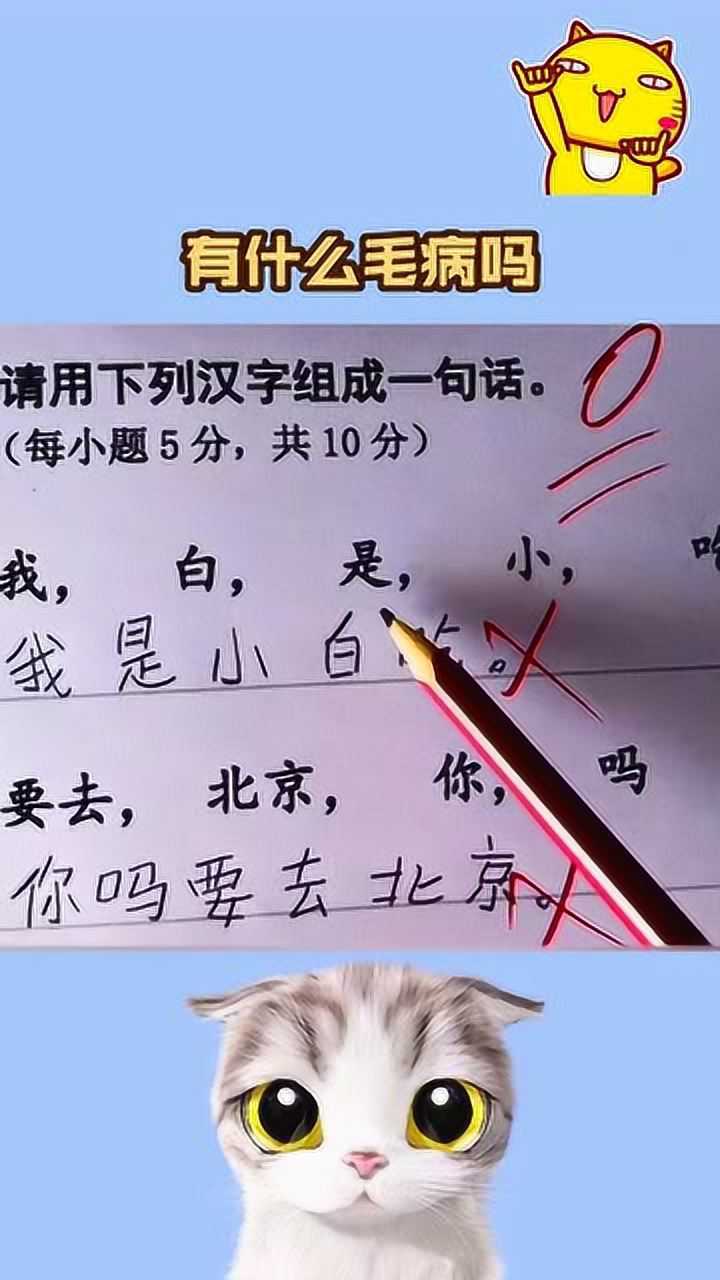 有什么毛病吗
请用下列汉字组成一句话。
0
(每小题5分，共10分)
我， 白， 是， 小，
我是小白
要去， 北京， 你， 吗
你吗要去北京。